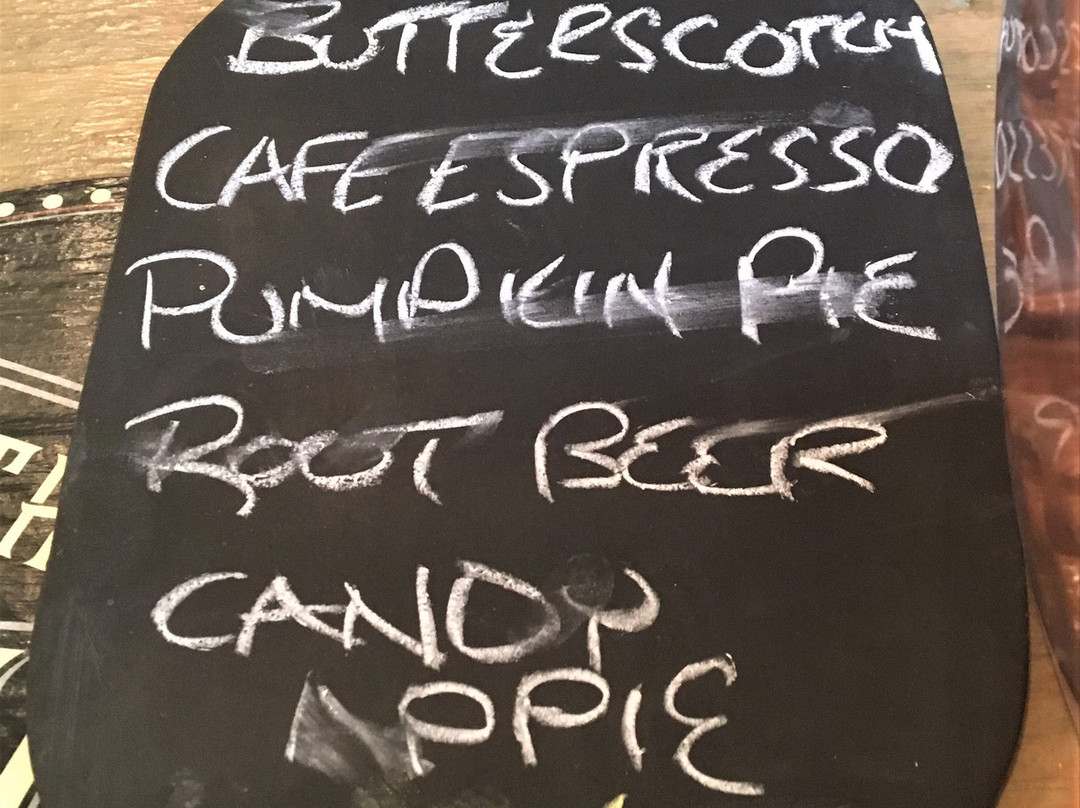 BUTTERSCOTCH
CAFE ESPRESSO
PUMPKIN PIE
ROOT BEER
CANDY
APPLE